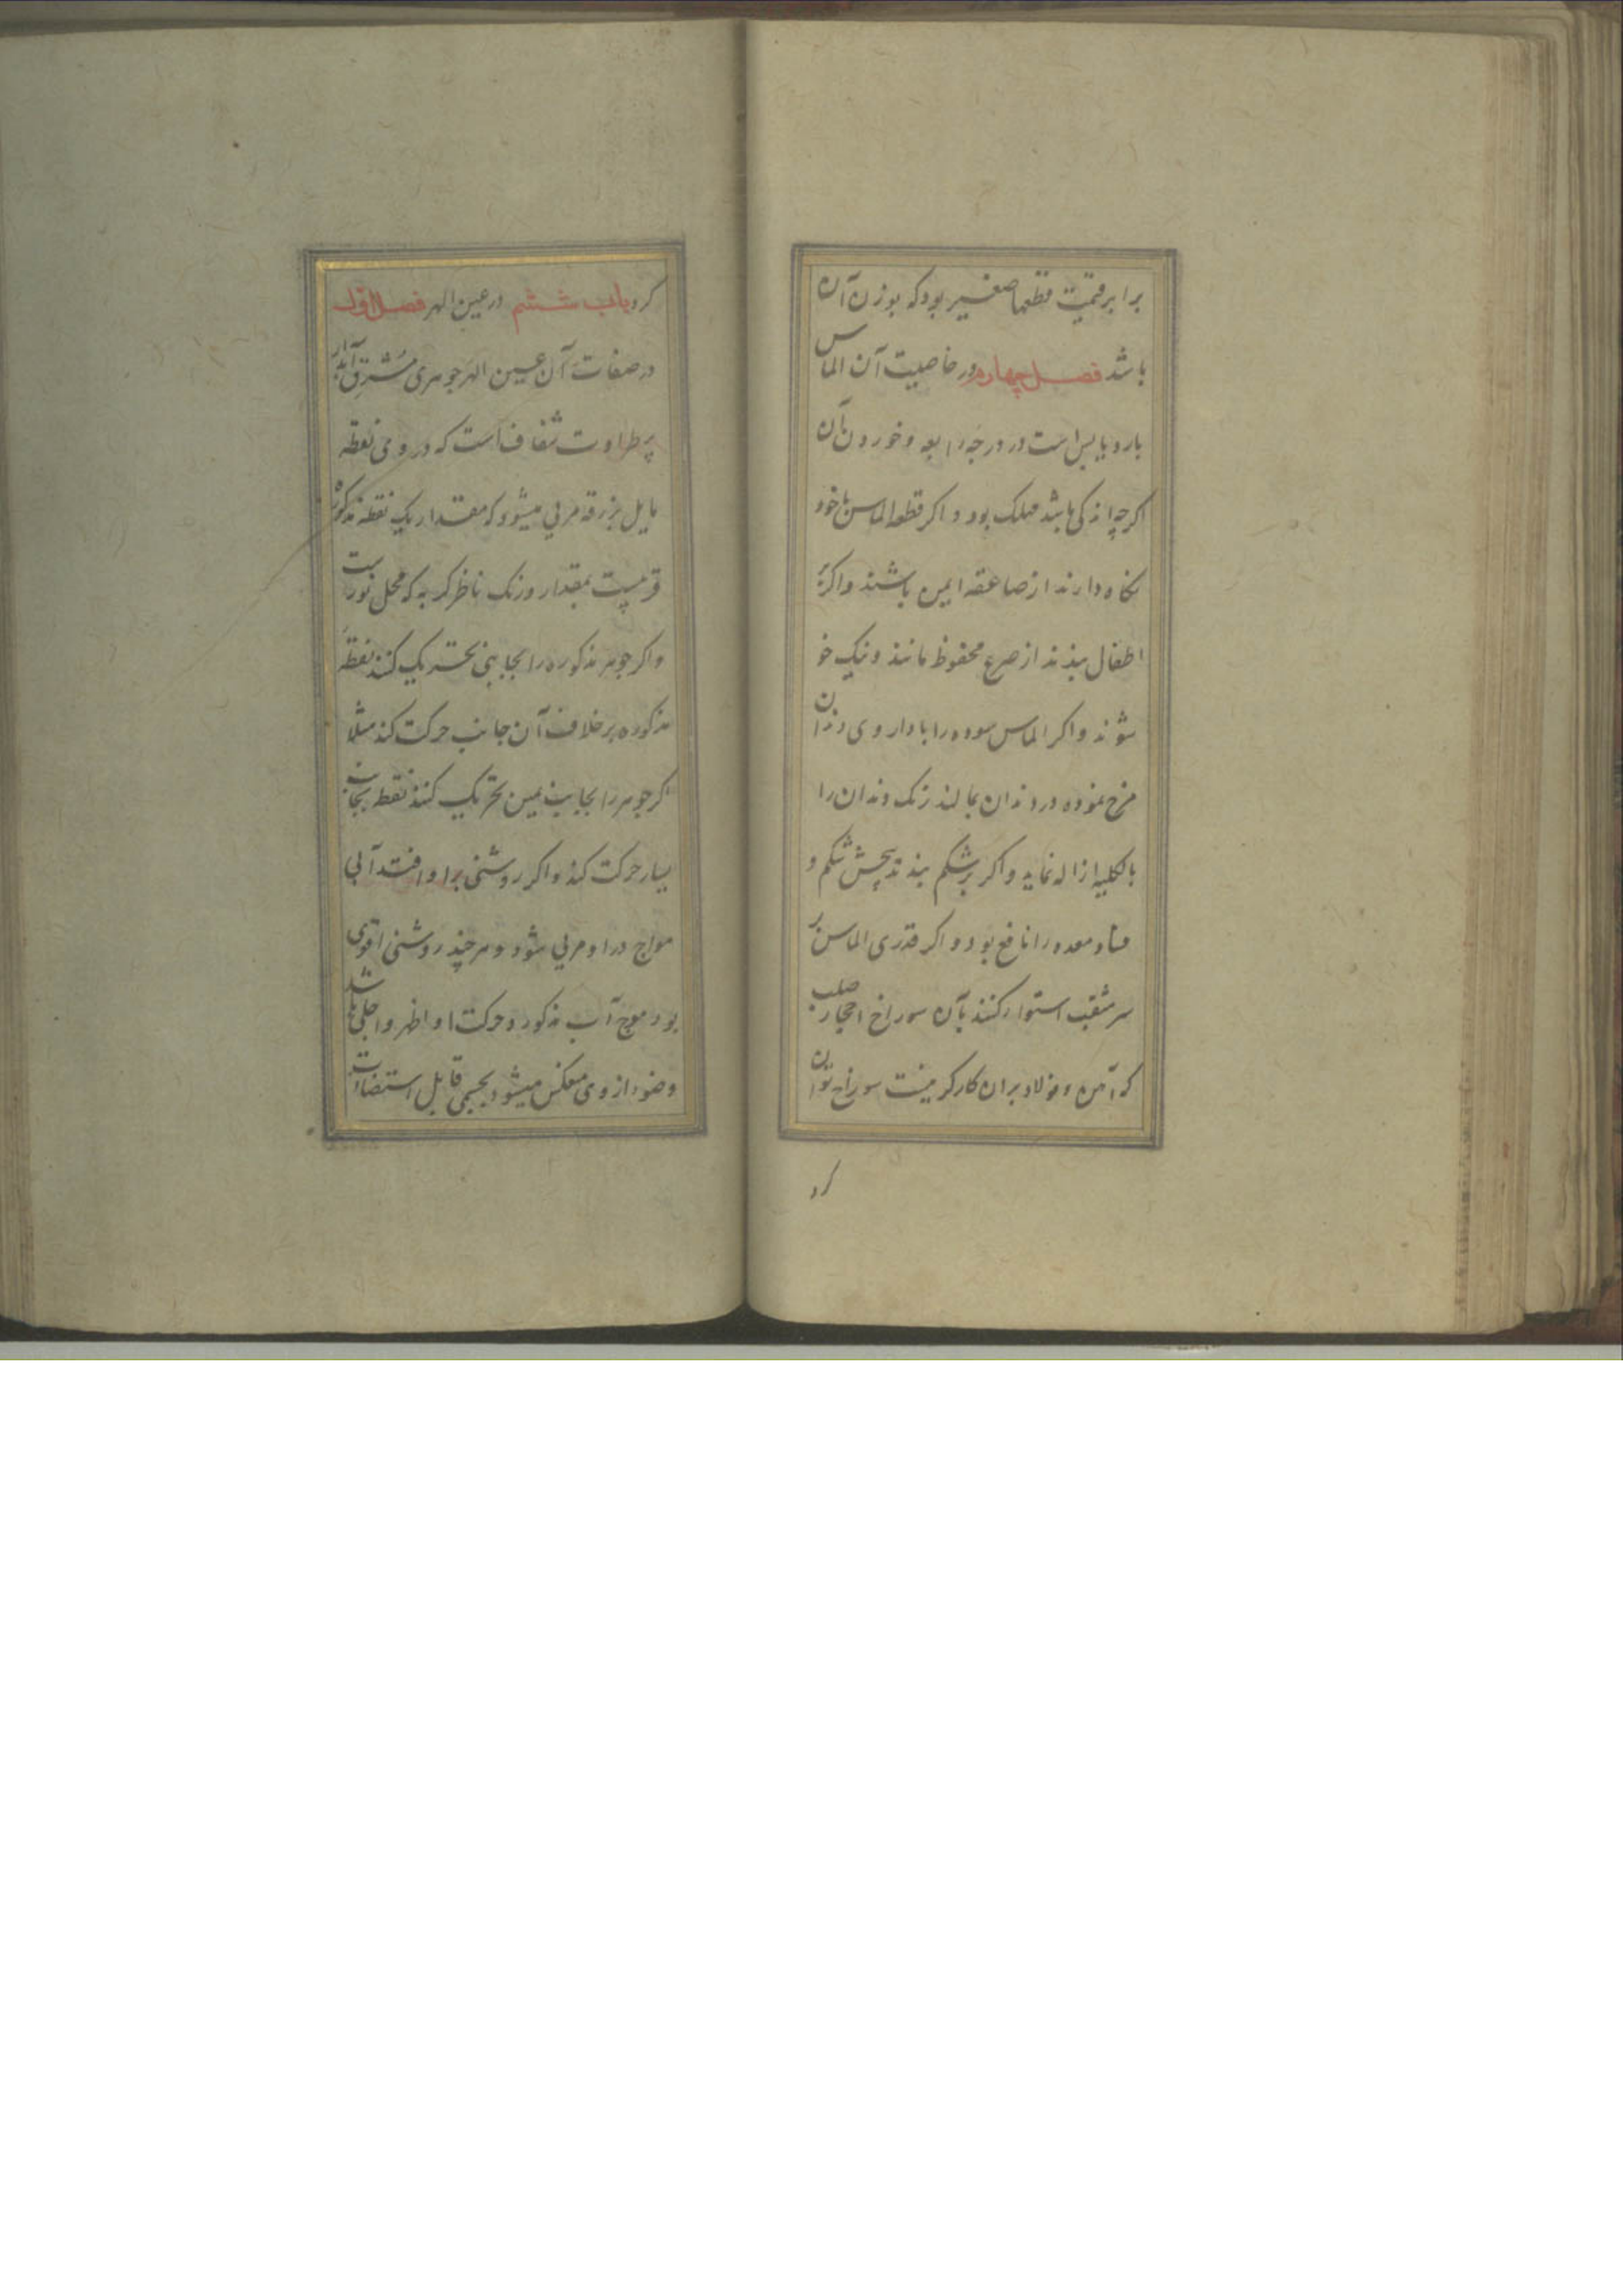 برابر قیمت قطعها صغیر بود که بوزن آن
باشد فصل چهارم در خاصیت آن الماس
بارد و یابس است در درجه رابعه و خوردن آن
اکرچه اندکی باشد مهلک بود و اکر قطعه الماس با خود
نکاه دارند از صاعقه ایمن باشند و اکر بر
اطفال بندند از صرع محفوظ مانند و نیک خو
شوند و اکر الماس سوده را با داروی دندان
مزج نموده در دندان بمالند زنک دندان را
بالکلیه ازاله نماید و اکر بر شکم بندند پیچش شکم و
فساد معده را نافع بود و اکر قدری الماس بر
سر مثقب استوار کنند بآن سوراخ احجار صلب
که آهن و فولاد بران کارکر نیست سوراخ توان
کرد
کرد باب ششم در عین الهر فصل اول
در صفات آن عین الهر جوهری مشرق آبدار
پر طراوت شفاف است که در وی نقطه
مایل بزرقه مرئی میشود که مقدار یک نقطه مذکوره
قریبست بمقدار و رنک ناظر کربه که محل نورست
و اکر جوهر مذکوره را بجانبی تحریک کنند نقطه
مذکوره برخلاف آن جانب حرکت کند مثلا
اکر جوهر را بجانب یمین تحریک کنند نقطه بجانب
یسار حرکت کند و اکر روشنی برا و افتد آبی
مواج درا و مرئی شود و هر چند روشنی اقوی
بود موج آب مذکور و حرکت او اظهر و اجلی باشد
و ضوء از وی منعکس میشود بجسمی قابل استضاات